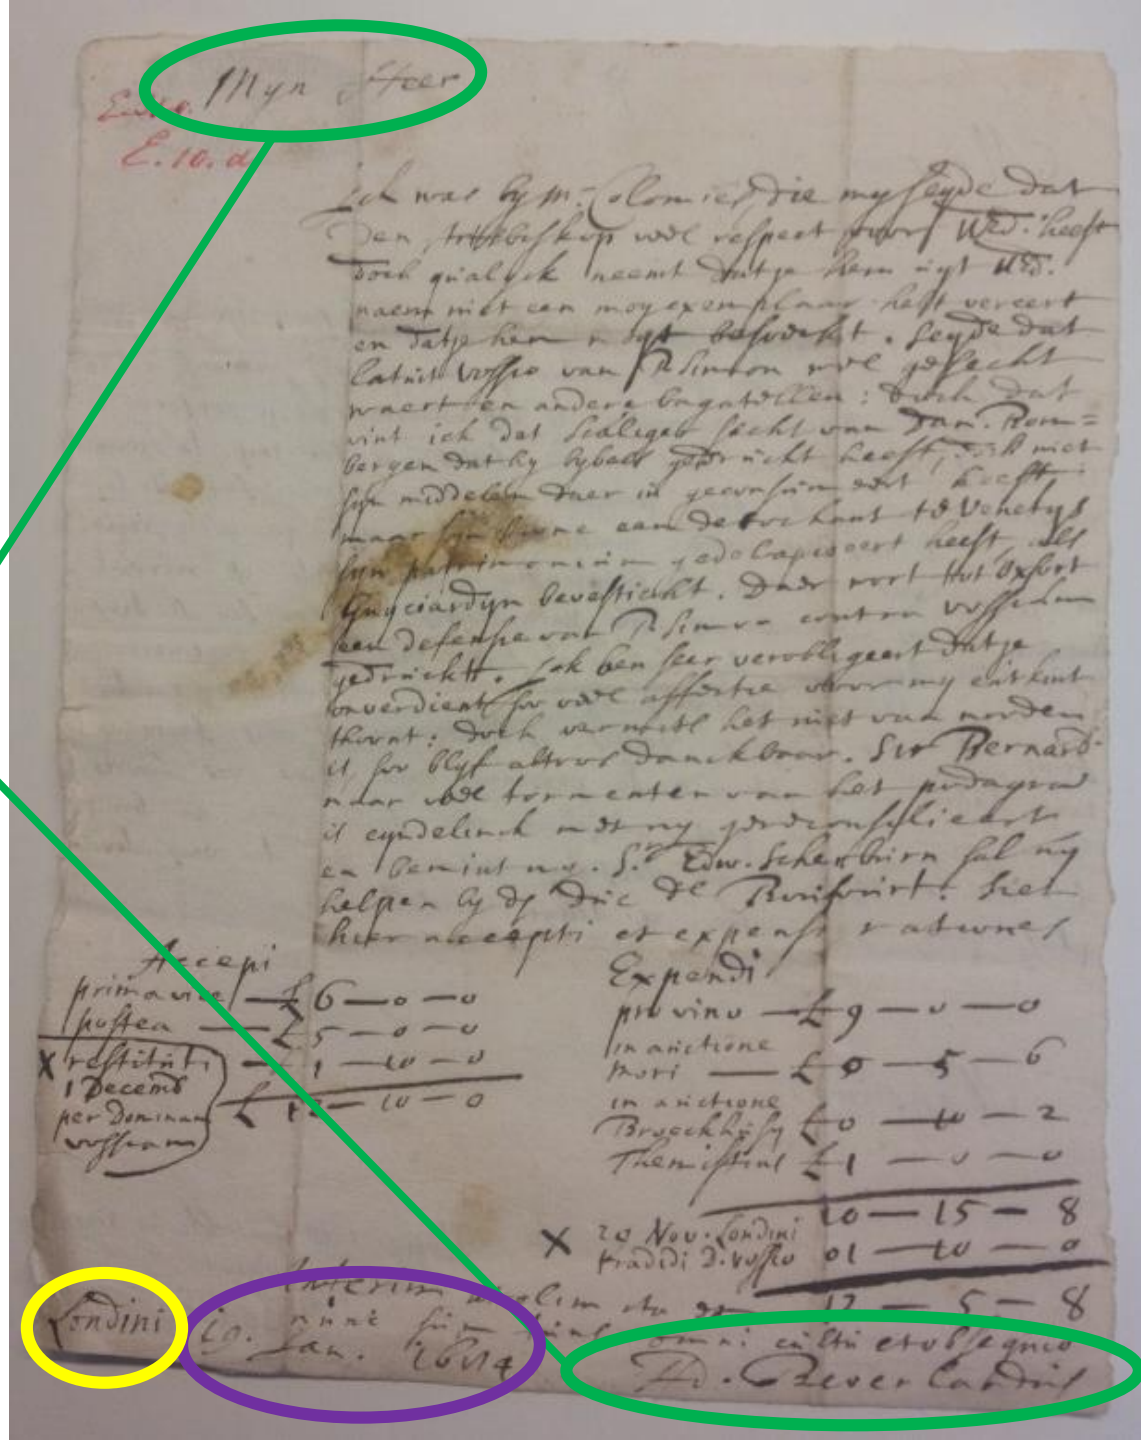 Myn Heer
E. 10. d
Ick was by Mr. Colomies, die my seyde dat
Den veel respect voor UEd. heeft
doch qualyck neemt datje hem uyt UEd.
naem niet een moy exemplaar heft vereert
en datje hem besoeckt. Seyde dat
van P. Simon wel
waert en andere bagatellen: doch dat
vint ick dat Scaliger secht van Dan. Bom=
bergen dat hy bybels gedruckt heeft, niet
syn middelen daer in geconsumeert heeft
maar syn aan te Venetys
syn patrimonium gedelapideert heeft, als
Guyciardyn bevesticht. Daer wort tot Oxfort
een defensie van P. Simon contra Vossium
gedruckt. Ick ben seer verobligeert datje
onverdient soo veel affectie voor my
thoont: doch vermits het niet van noden
is, soo blyf altoos danckbaar. Sir Bernard
naar veel tormenten van het podagra
is eyndelinck met my gereconsilieert
en bemint my. Sr. Edw. Scherburn sal my
helpen by de Duc de. Siet
hier accepti et expensi rationes
Accepi
prima vice £ 6 — 0 — 0
postea — £ 5 — 0 — 0
X restituti £ 1 — 10 — 0
1 Decemb
per Dominam £ 12 — 10 — 0
Vossianam
Expendi
pro vino — £ 9 — 0 — 0
in auctione
Mori — £ 0 — 5 — 6
in auctione
Broeckhysy £ 0 — 10 — 2
Themistius £ 1 — 0 — 0
10 — 15 — 8
X 20 Nov. Londini
tradidi D. Vossio 01 — 10 — 0
12 — 5 — 8
Interim ut olim ita et
nunc sum omni cultu et obsequio
Londini 19. Jan. 1684
Hd. Beverlandus